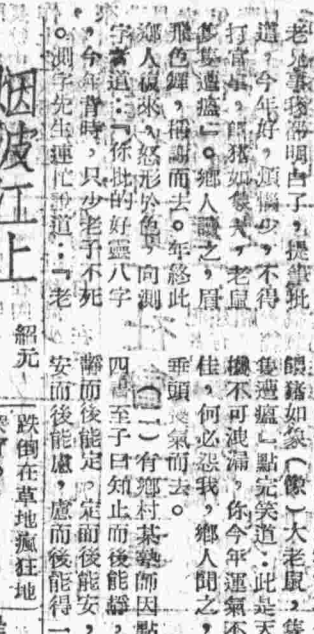 老兄事我都明白了，提筆批
道，今年好，煩惱少，不得
打官事，餵猪如象大，老鼠
隻隻遭瘟』。鄉人讀之，眉
飛色舞，稱謝而去。年終此
鄉人復來，怒形於色，向測
字者道：『你批的好靈八字
，今年背時，只少老子不死
。測字先生連忙道：『老
餵猪如象（像）大老鼠，隻
隻遭瘟』點完笑道：此是天
機不可洩漏，你今年運氣不
佳，何必怨我，鄉人聞之，
垂頭喪氣而去。
（二）有鄉村某塾師因點
四書至子曰知止而後能靜，
靜而後能定，定而後能安，
安而後能慮，慮而後能得一
烟波江上
紹元
跌倒在草地瘋狂地